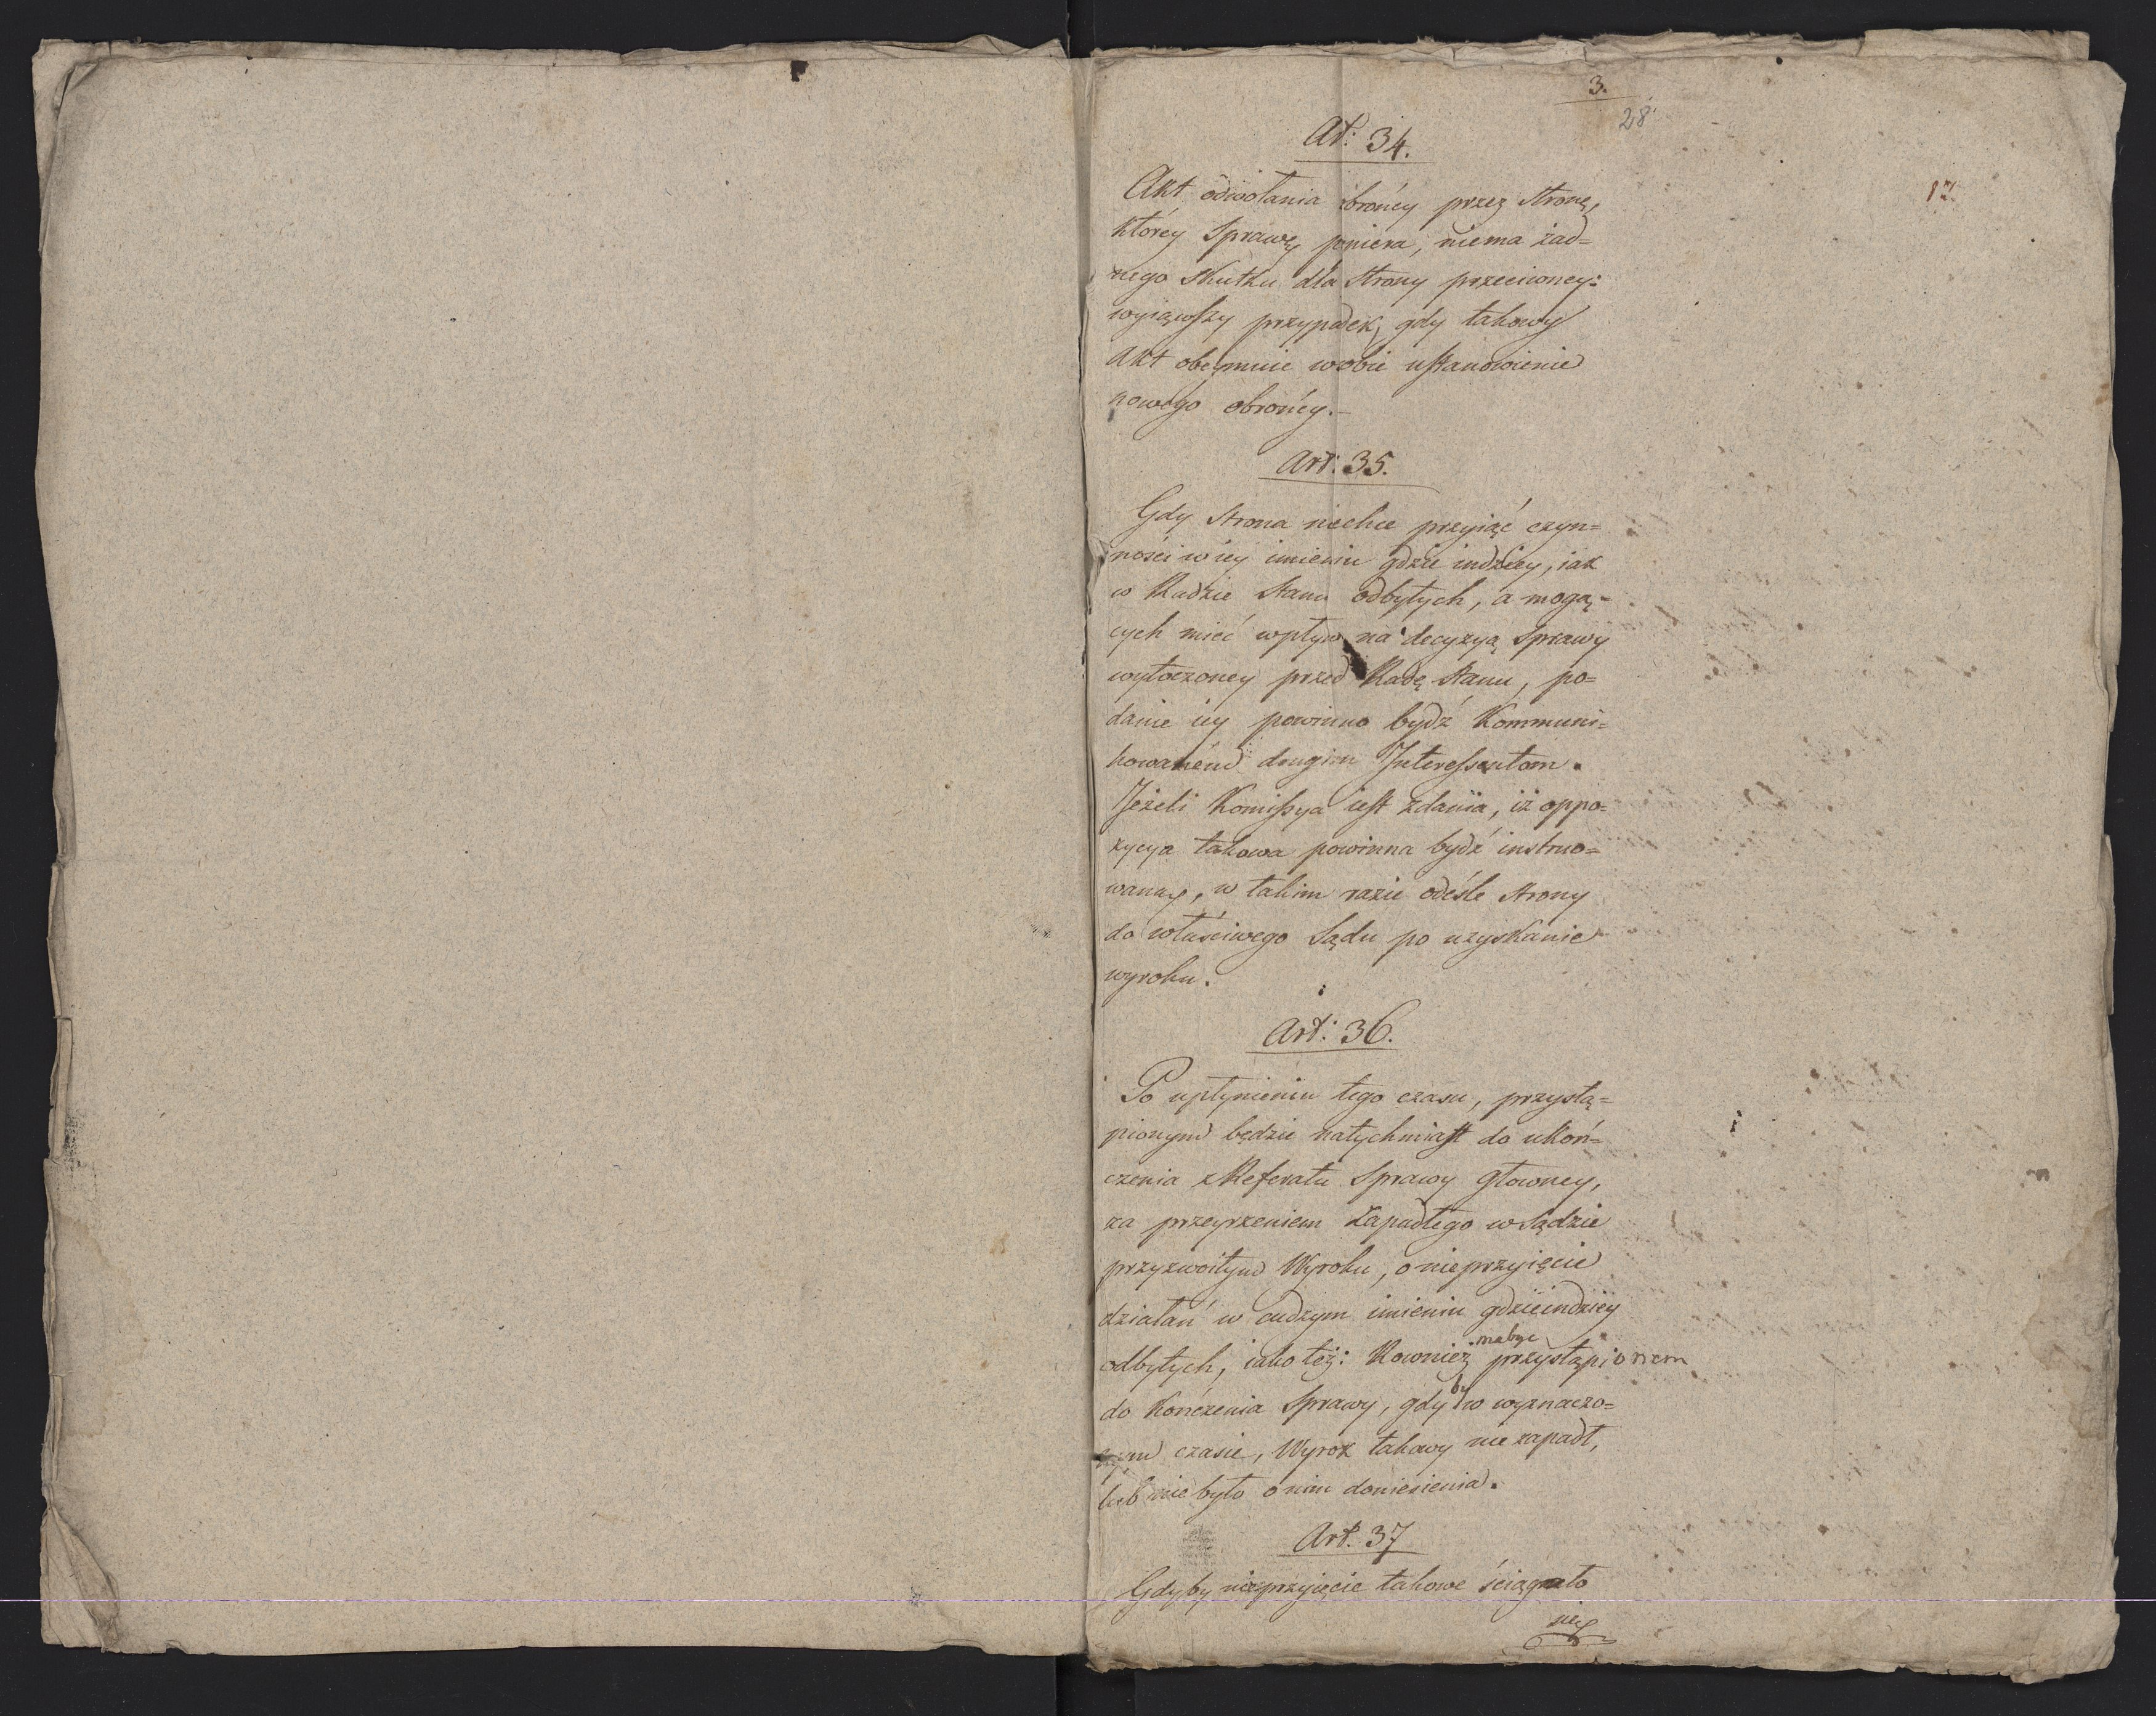 3.
28
17.
Art: 34.
Akt odwołania obrońcy przez stronę,
którey Sprawę pniera, niema żad=
nego skutku dla Strony przeciwney:
wyiąwszy przypadek, gdy takowy
Akt obeymuie w sobie ustanowienie
nowego obrońcy.-
Art: 35.
Gdy strona niechce przyiąć czyn=
ności w iey imieniu gdzie indziey, iak
w Radzie Stanu odbytych, a mogą=
cych mieć wpływ na decyzyą Sprawy
wytoczoney przed Radę Stanu, po=
danie iey powinno bydź Kommuni=
kowanem drugim Interessentom.
Jeżeli Komissya iest zdania, iż oppo=
zycya takowa powinna bydź instruo=
waną, w takim razie odeśle strony
do właściwego Sądu po uzyskanie
wyroku.
Art: 36.
Po upłynieniu tego czasu, przystą=
pionym będzie natychmiast do ukoń=
czenia z Referatu Sprawy głowney,
za przeyrzeniem zapadłego w Sądzie
przyzwoitym Wyroku, o nieprzyięcie
działań w cudzym imieniu gdzieindziey
odbytych, iako też: Rownież ma być przystąpionem
do kończenia Sprawy, gdyby w wyznaczo=
nym czasie, Wyrok takowy nie zapadł,
lub nie było o nim doniesienia.
Art. 37
Gdyby nieprzyięcie takowe ściągało
się